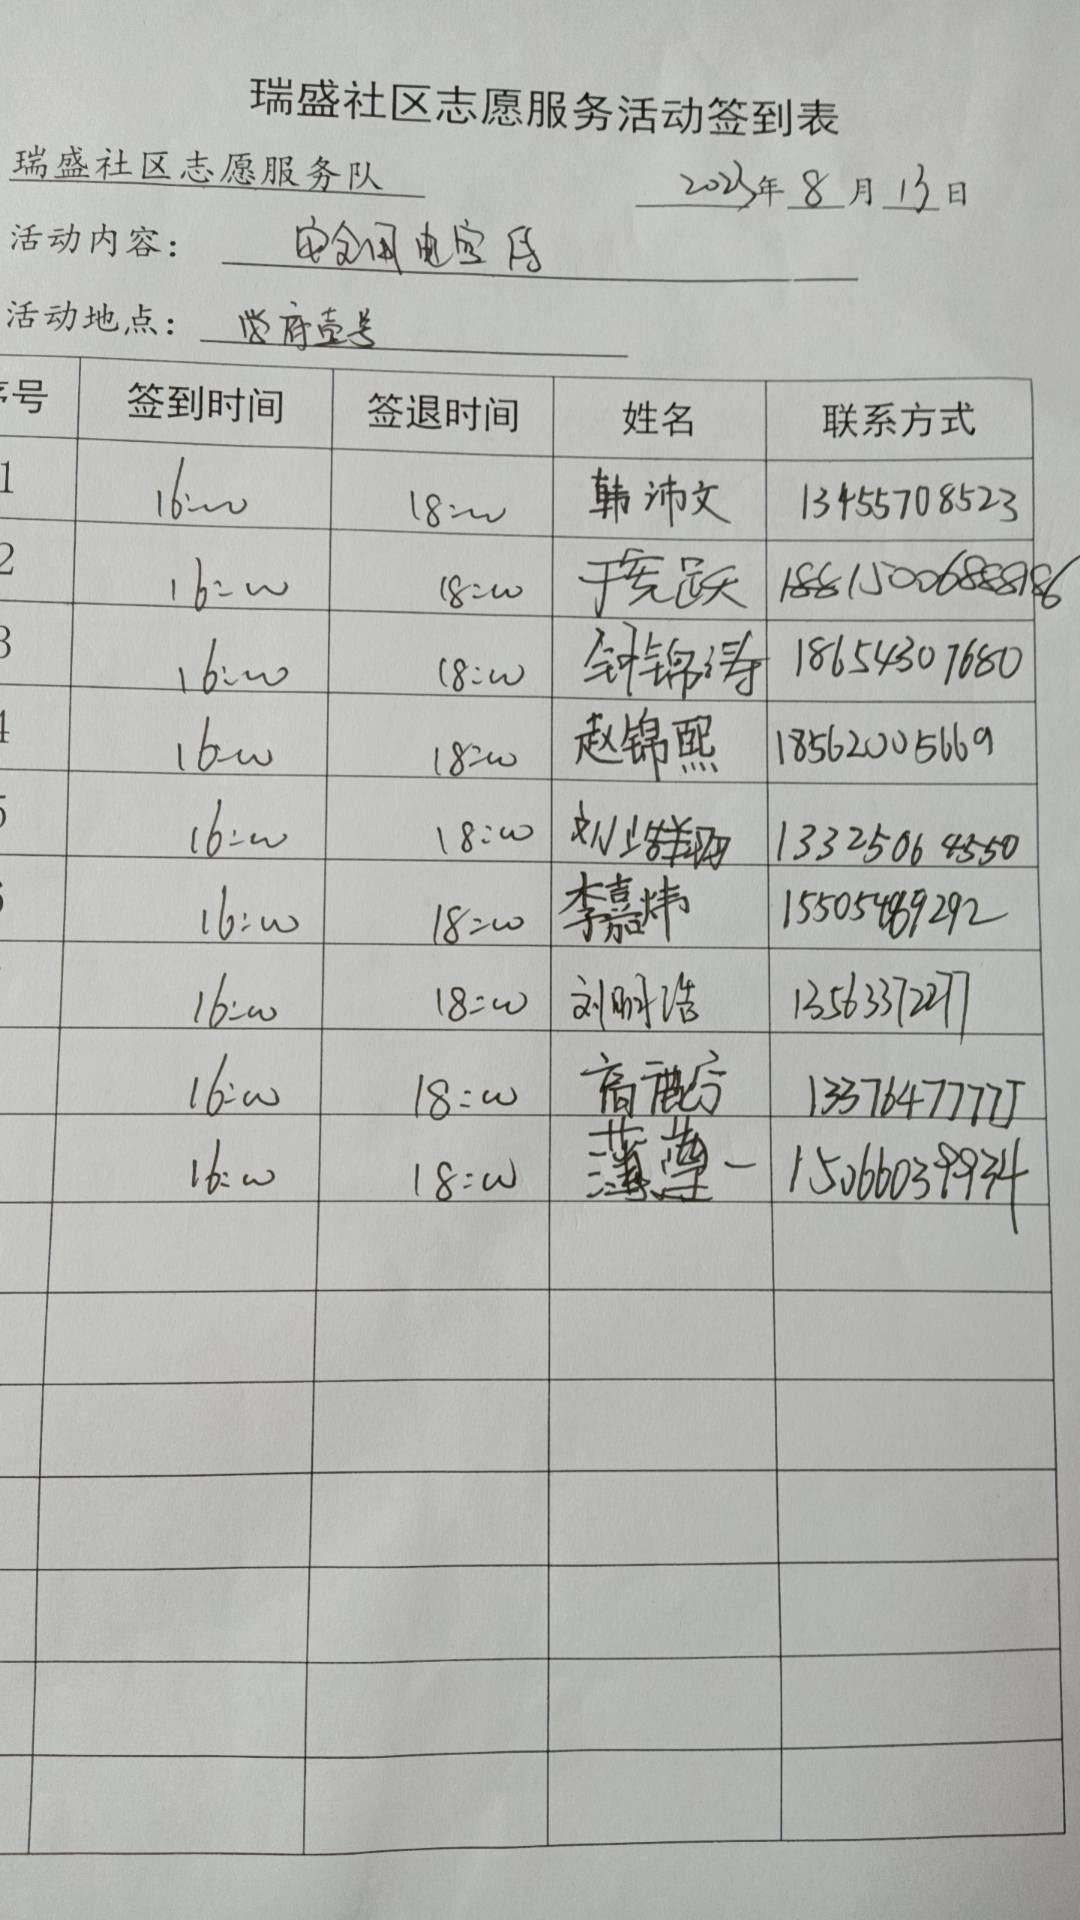 瑞盛社区志愿服务活动签到表
瑞盛社区志愿服务队 2023年8月13日
活动内容：安全用电宣传
活动地点：学府壹号
序号 签到时间 签退时间 姓名 联系方式
1 16:00 18:00 韩沛文 13455708523
2 16:00 18:00
3 16:00 18:00 钟锦涛 18654307680
4 16:00 18:00 赵锦熙 18562005669
5 16:00 18:00 13325064550
16:00 18:00 李嘉炜 15505489292
16:00 18:00 刘明浩 13563372277
16:00 18:00 13376477775
16:00 18:00 15066039934